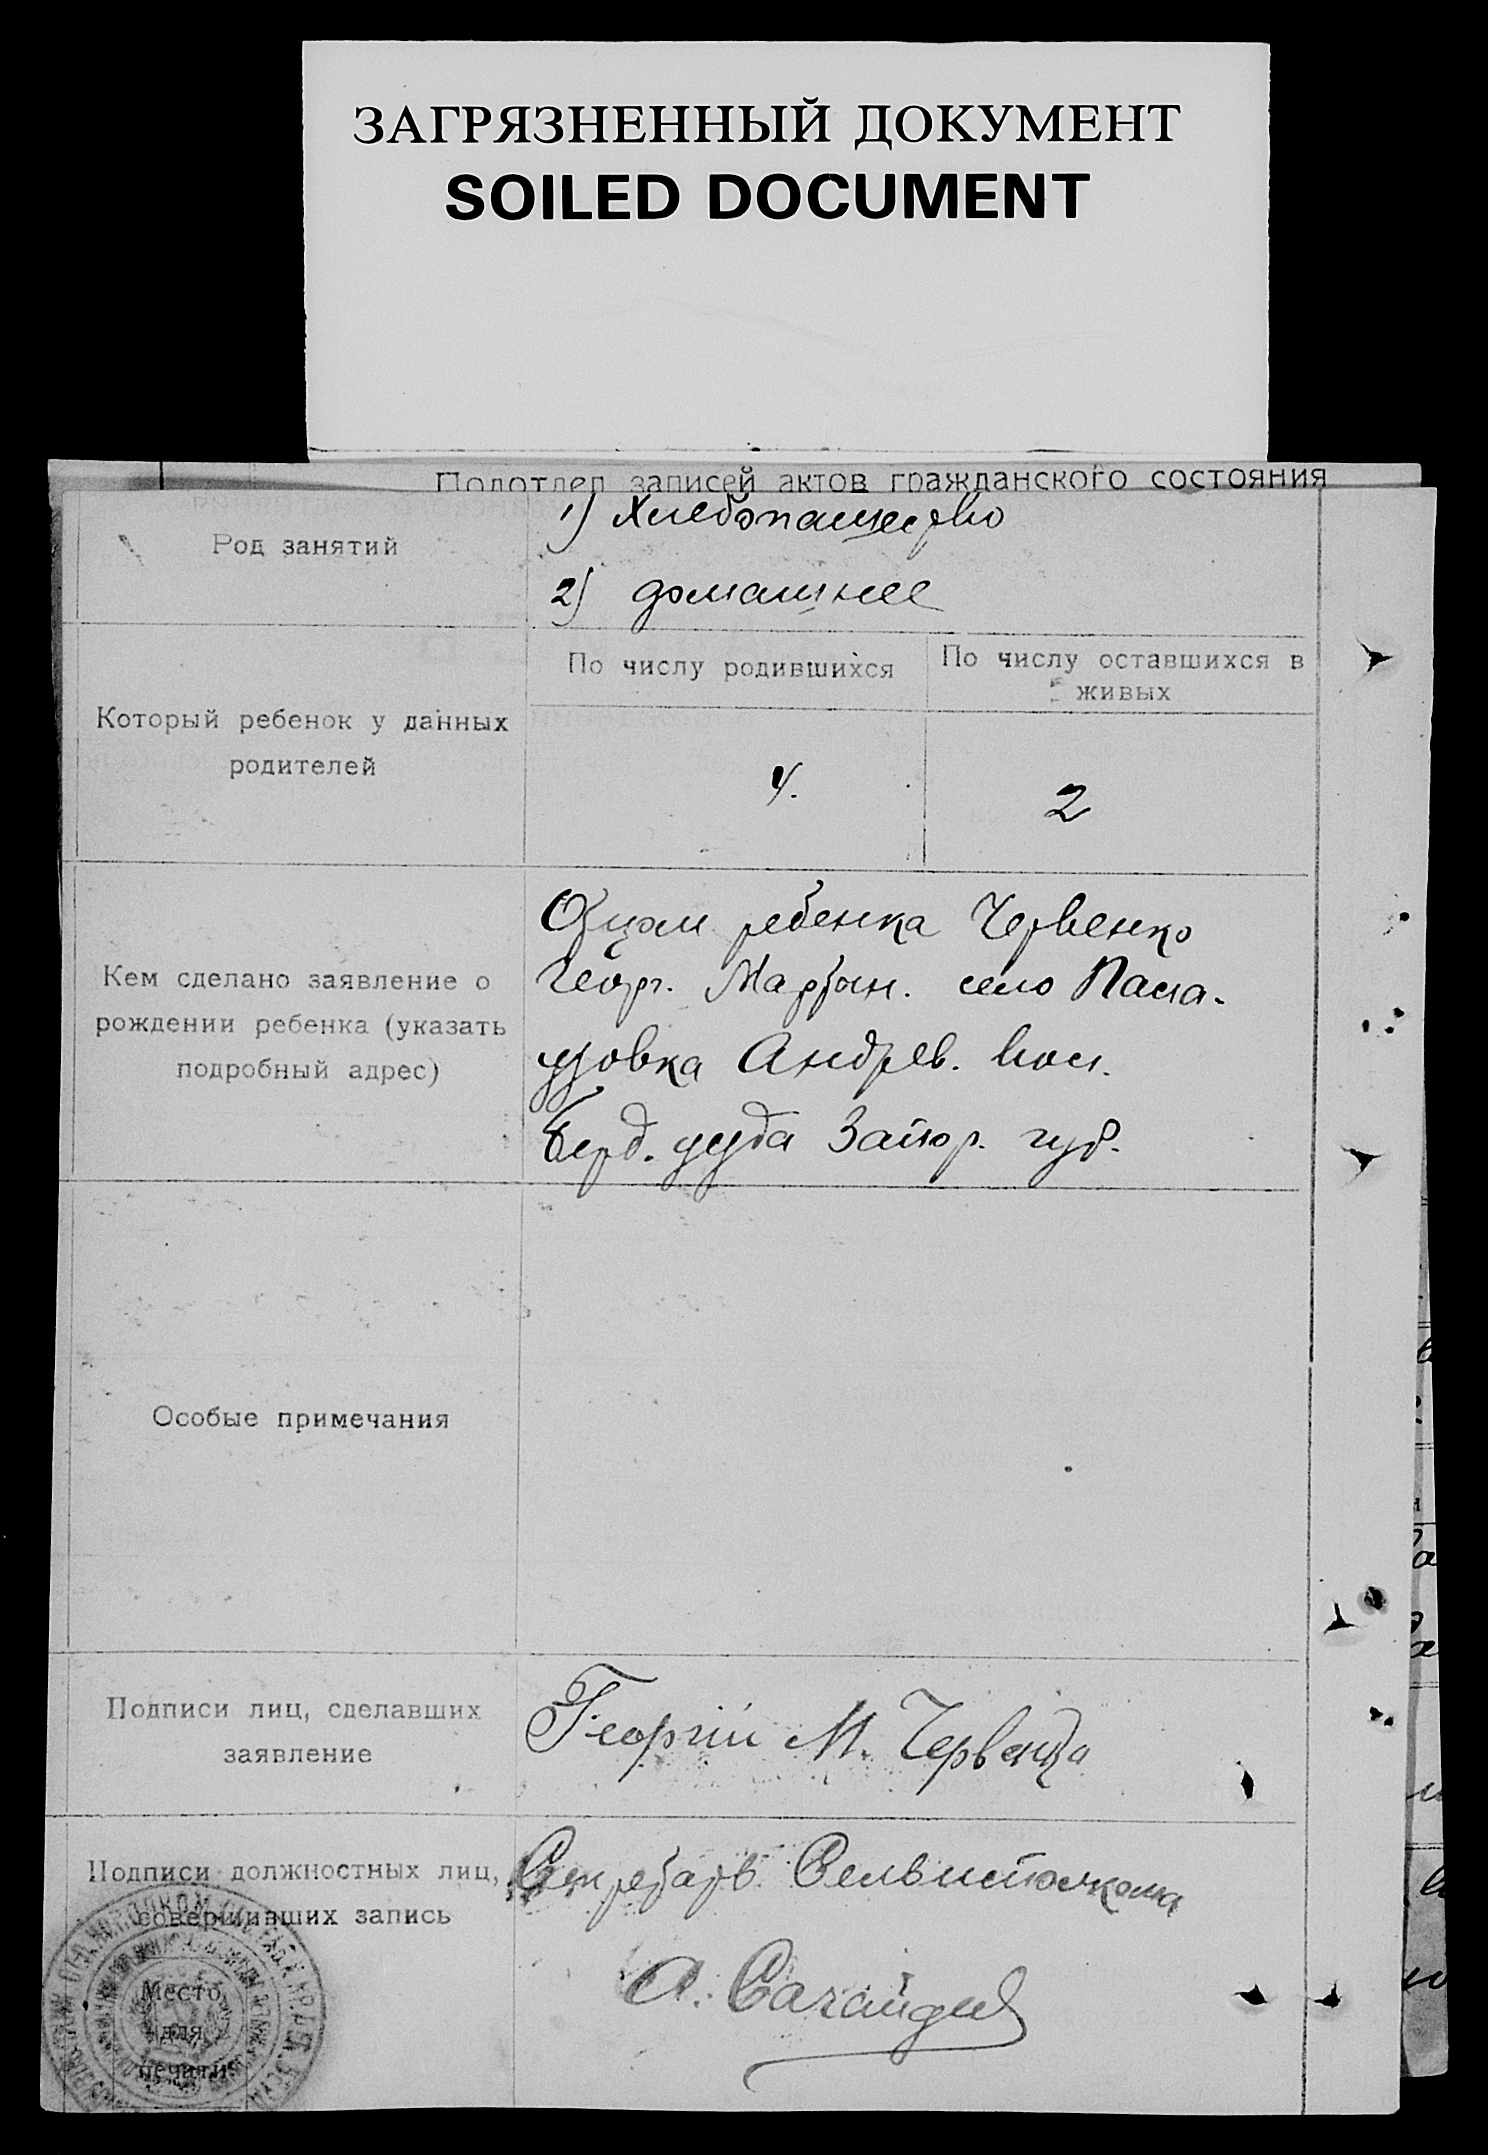 ЗАГРЯЗНЕННЫЙ ДОКУМЕНТ
SOILED DOCUMENT
Подотдел записей актов гражданского состояния
Род занятий
1) Хлебопашество
2) домашнее
Который ребенок у данных
родителей
По числу родившихся
По числу оставшихся в
живых
4.
2
Кем сделано заявление о
рождении ребенка (указать
подробный адрес)
Отцом ребенка Червенко
Георг. Мартын. село Пала-
узовка Андрев. вол.
Берд. уезда Запор. губ.
Особые примечания
Подписи лиц, сделавших
заявление
Георгий М. Червенко
Подписи должностных лиц,
совершивших запись
Секретарь
А.
Место
для
печати